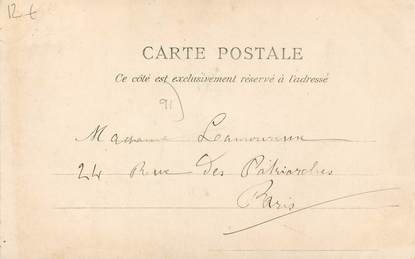 12 €
CARTE POSTALE
Ce côté est exclusivement réservé à l'adresse
91
Madame Lamoureux
24 Rue des Patriarches
Paris